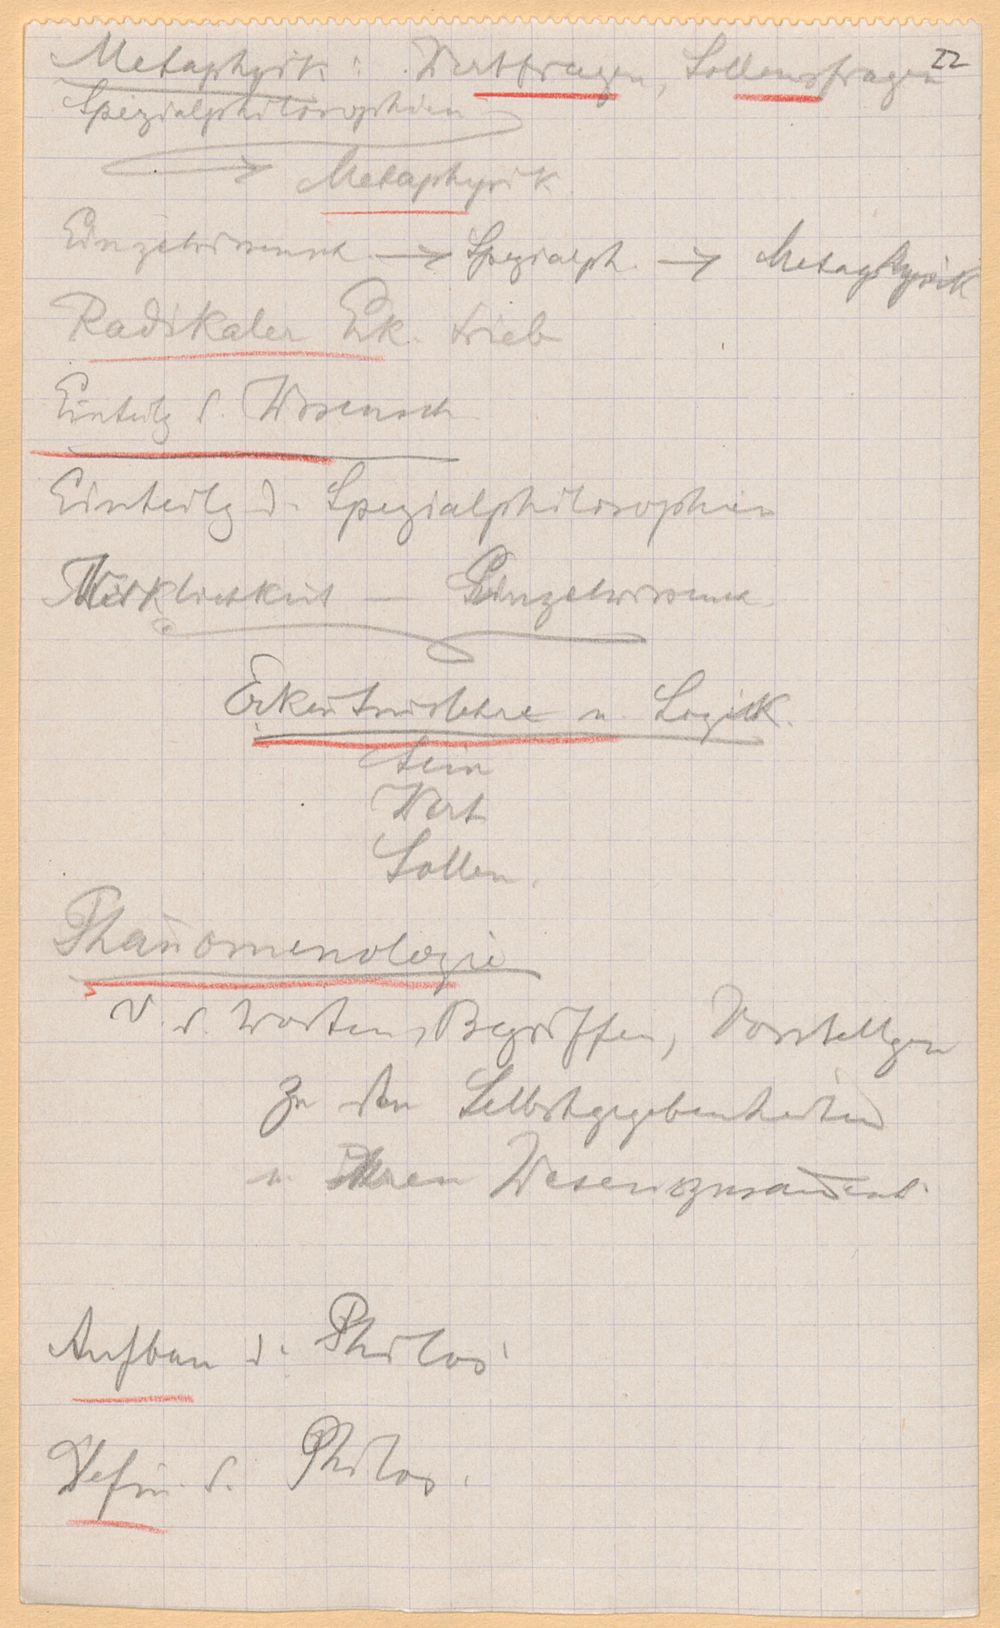 22
Metaphysik: Wertfragen, Sollensfragen
Spezialphilosophien
→ Metaphysik
Einzelwissensch. → Spezialph. → Metaphysik
Radikaler Erk. trieb
Einteilg d. Wissensch
Einteilg d. Spezialphilosophien
Wirklichkeit — Einzelwissensch.
Erkentnislehre u. Logik.
Sein
Wert
Sollen.
Phänomenologie
V. d. Worten, Begriffen, Vorstellgen
zu den Selbstgegebenheiten
u. ihren Wesenszusamenh.
Aufbau d. Philos.
Defin. d. Philos.